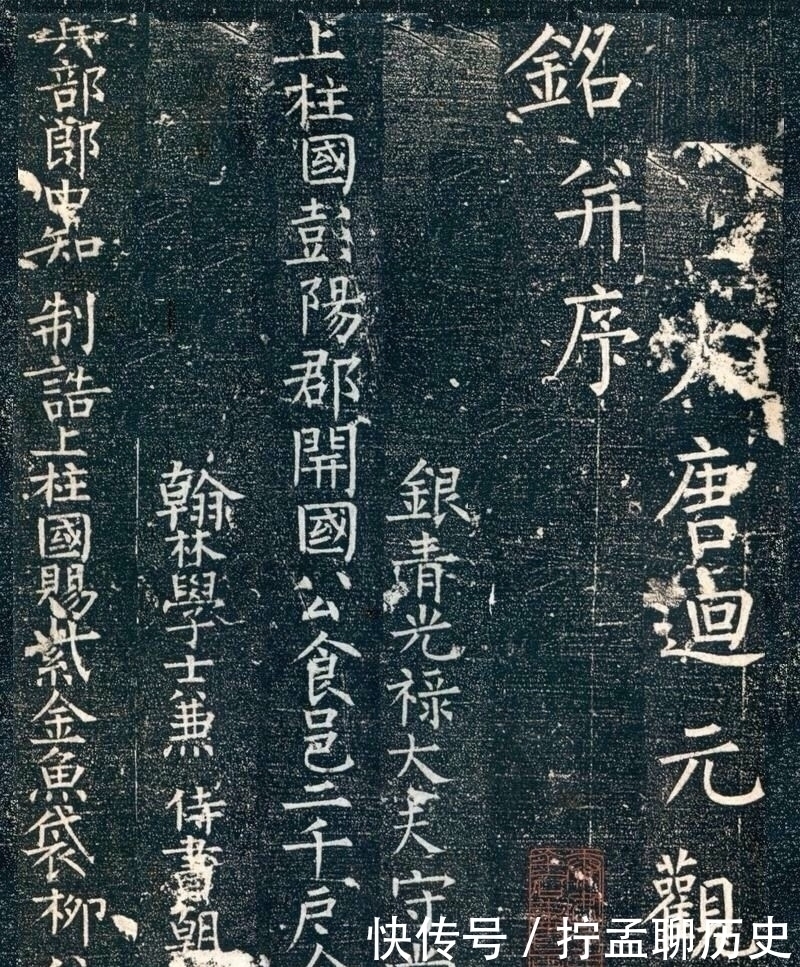 大唐迴元觀
銘并序
銀青光祿大夫守
上柱國彭陽郡開國公食邑二千戶
翰林學士兼 侍書朝
兵部郎中知 制誥上柱國賜紫金魚袋柳
快传号 / 拧孟聊历史